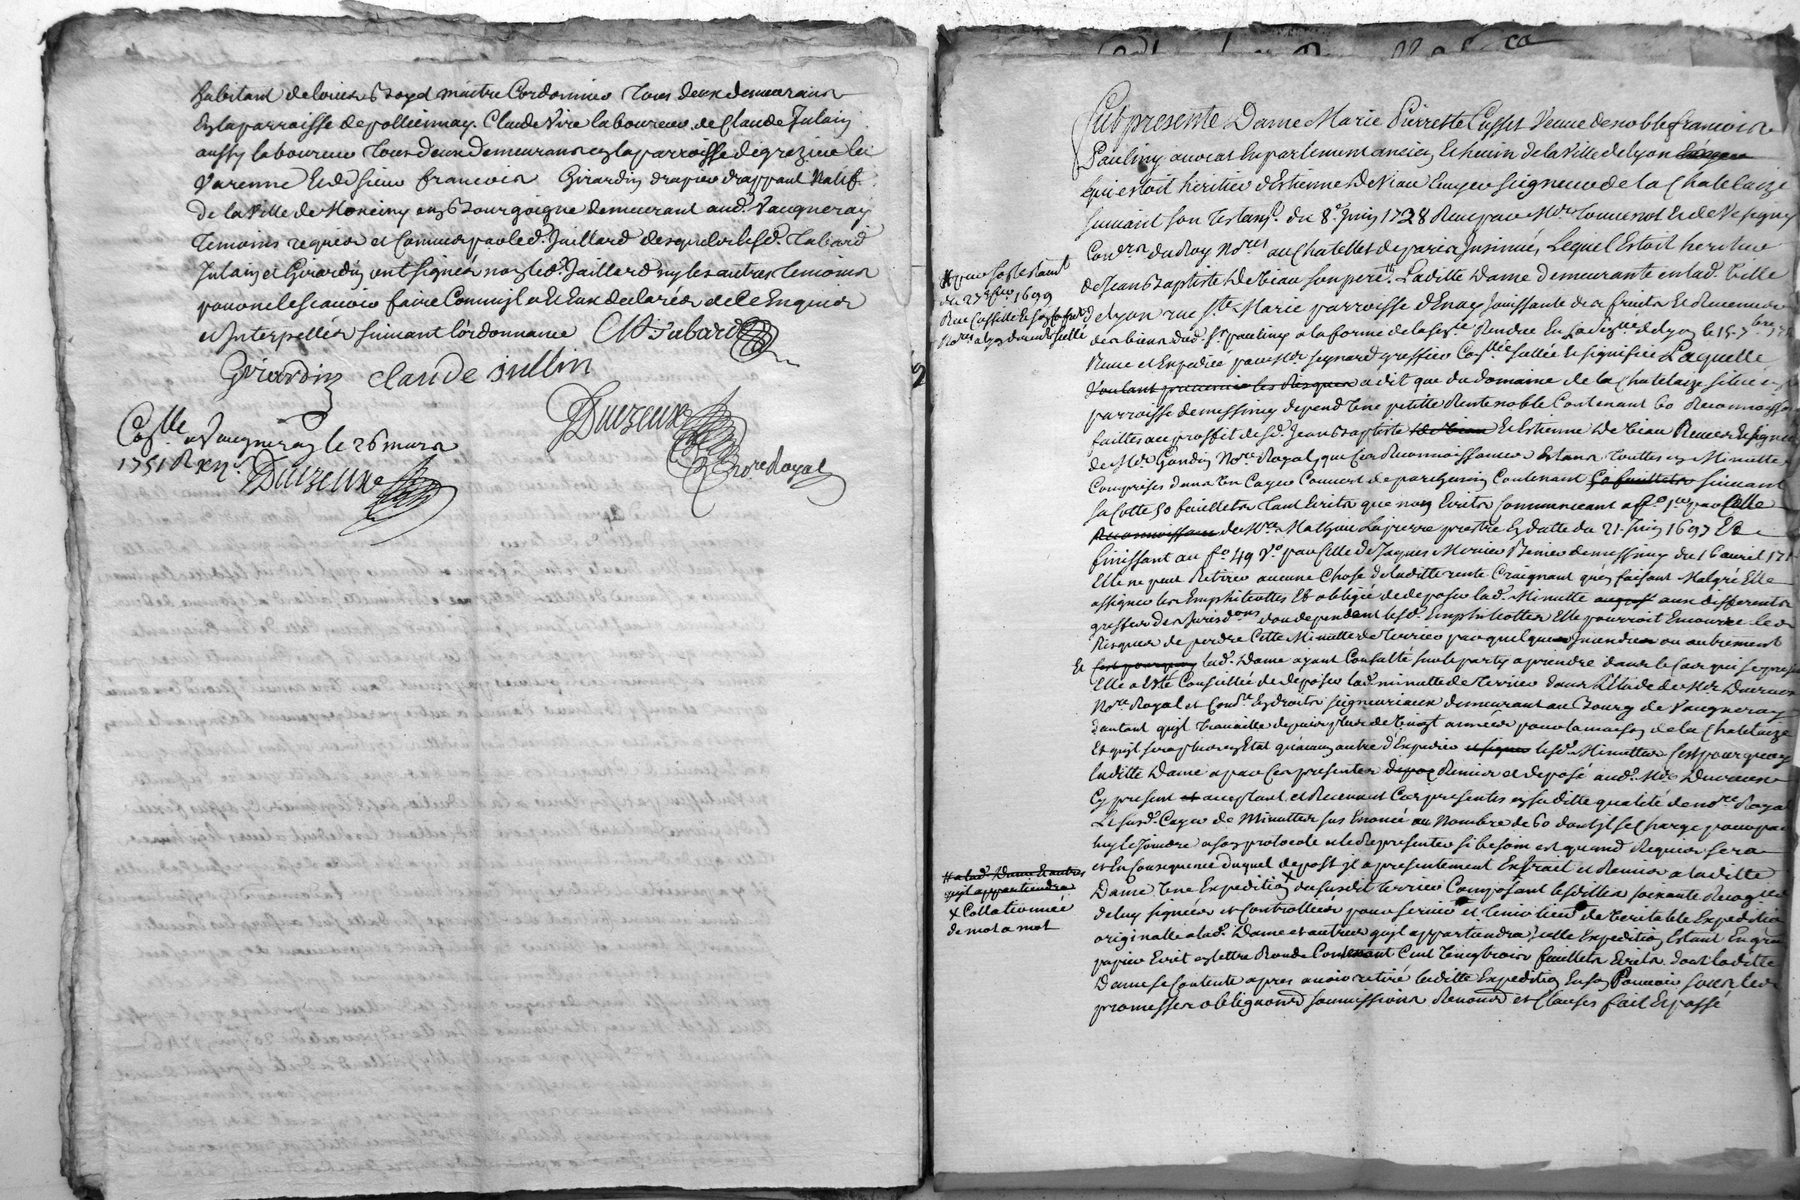 habitant de Bayet maitre Cordonnier tous deux demeurans
en la parroisse de pollionnay. Claude Vire laboureur, de Claude Julain
aussy laboureur tous deux demeurans en la parroisse de grezieu la
Varenne Et de sieur francois Girardin drapier drappant Natif
de la Ville de en Bourgoigne demeurant aud. Vaugneray
temoins requis et Connus par led. Jaillard desquels lesd. Tabard
Julain et Girardin ont signés non led. Jaillard ny les autres temoins
pour ne le scavoir faire Comme jl a et Eux declarés de Ce Enquis
et Interpellés suivant l'ordonnance C Tabard
Girardin claude jullin
Duizeux
Nore Royal
Coslle a Vaugneray le 26 mars
1751 R xiis Duizeux
Fut presente Dame Marie Pierrette Cusset Veuve de noble francois
Pauliny avocat En parlement ancien Echevin de la Ville de lyon
qui estoit heritier d'Estienne De Veau Ecuyer seigneur de la Chatelaize
suivant son testant. du 8e. Juin 1728 Recu par Mes. et de Vesigny
Conrs. du Roy Nores au Chatellet de paris Insinué, Lequel Estoit heritier
de Jean Baptiste De Veau son pere # Laditte Dame demeurante en lad. Ville
# par son testant
du 27e 1699
Recu
Nores a lyon duement scellé
de lyon rue Ste. Marie parroisse d'Enay Jouissante des fruits Et Revenus
des biens dud. Sr. pauliny a la forme de la Rendue En la de lyon le 15 7bre
Recue et Expediée par Mr seynard greffier scellée Et signifiée Laquelle
Voulant prevenir les Risques a dit que du domaine de la Chatelaize situé en
parroisse de messimy depend une petitte Rente noble Contenant 60 Reconnoissan
faittes au proffit de sd. Jean Baptiste De Veau Et Estienne De Veau Recues Et signées
de Me. Gandin Nore Royal, que les Reconnoissances Estans touttes en Minutte
Comprises dans Un Cayer Couvert de parchemin Contenant 50 feuillets suivant
sa Cotte 50 feuillets tant Ecrits que non Ecrits Commencant a fo. 1er par Celle
Reconnoissance de Mre. Mathieu Lapierre prestre En datte du 21. Juin 1697 Et
finissant au fo. 49 Vo. par Celle de Jaques Mercier de messimy du 16 avril 171
Elle ne peut Retirer aucune Chose de laditte rente Craignant qu'en faisant Malgré Elle
assigner les Emphiteottes Et obligée de deposer lad. Minutte aux differents
greffes des Jurisdons. dou dependent lesd. Emphiteottes Elle pourroit Encourre les
Risques de perdre Cette Minutte de Terrier par quelques Jncendies ou autrement
Et C'est pourquoy lad. Dame ayant Consulté sur le party a prendre dans le Cas qui se pre
Elle a Eté Conseillée de deposer lad. minutte de terrier dans l'Etude de Me. Duizeux
Nore Royal et Conre. En droits seigneuriaux demeurant au Bourg de Vaugneray
d'autant qu'jl travaille depuis plus de Vingt années pour la maison de la Chatelaize
Et qu'jl sera plus en Etat qu'aucun autre d'Expedier et signer lesd. Minuttes C'est pourquoy
laditte Dame a par Ces presentes depoz Remis et deposé aud. Me Duizeux
Cy present et acceptant et Recevant Ces presentes en saditte qualité de nore Royal
Le susd. Cayer de Minuttes sus Enoncé au Nombre de 60 dont jl se Charge pour par
luy le Joindre a son protocole et le Representer si besoin est quand Requis sera
et En Consequence duquel depost jl a presentement Extrait et Remis a laditte
# a lad. Dame Et autres
qu'jl appartiendra
x Collationnée
de mot a mot
Dame Une Expedition x du susdit terrier Composant lesdittes soixante Recog
de luy signées et Controllées pour servir et tenir lieu de Veritable Expedition
originalle a lad. Dame et autres qu'jl appartiendra, Celle Expedition Estant En gra
papier Ecrit en lettre Ronde Contenant Cent Vingt trois feuillets Ecrits dont laditte
Dame se Contente apres avoir retiré laditte Expedition En son Pouvoir sous les
promesses obligaons soumissions Renond et Clauses fait Et passé